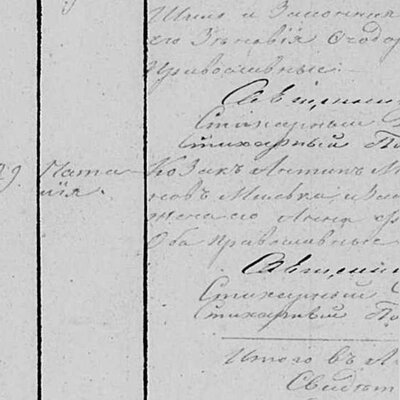 его Зѣновія Ѳеодор
православные.
Священни
Стихарный
Стихарный По
29. Ната-
лія.
Козакъ Антинъ М
новъ Миська, и За
жена его Анна Ф
Оба православные
Священни
Стихарный
Стихарный По
Итого въ
Свидѣт